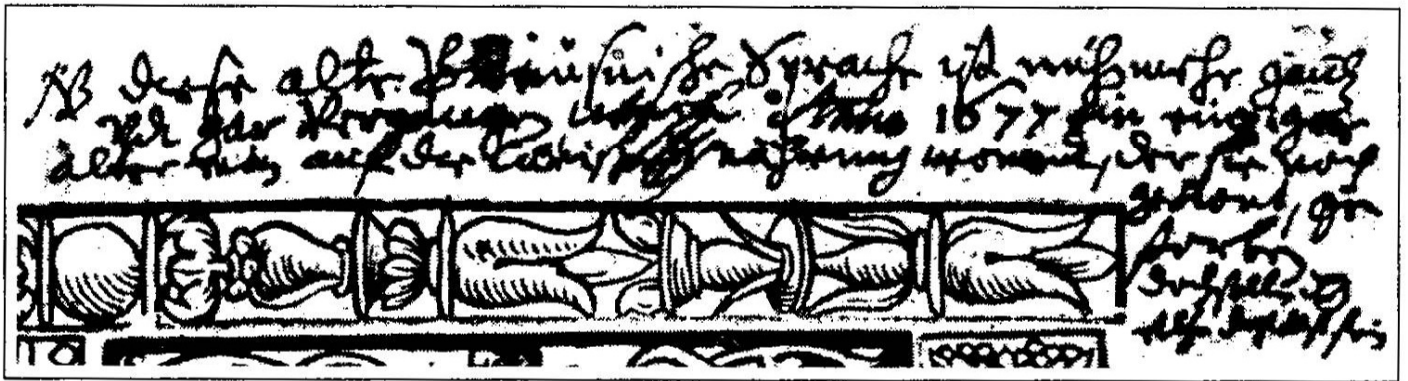 NB Diese alte Preusnische Sprache ist nuhmehr gantz
vndt gar vergangen worden Anno 1677 ein eintziger
alter Man auf der Curischen nährung wonend, der sie noch
gekont, ge
storben
doch sollen
daselbst sein